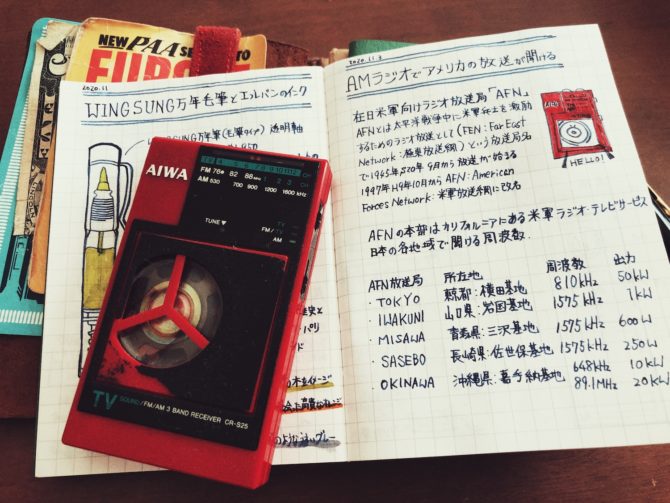 NEW PAA SE TO
EUROPE
2020.11
WING SUNG万年毛筆とエルバンのインク
透明軸
AIWA
TV
FM 76 82 88 MHz
AM 530 700 900 1200 1600 kHz
1 2 3 CH
TUNE▼
FM TV
AM
TV SOUND/FM/AM 3 BAND RECEIVER CR-S25
2020.11.3
AMラジオでアメリカの放送が聞ける
在日米軍向けラジオ放送局「AFN」
AFNとは太平洋戦争中に米軍兵士を激励
するためのラジオ放送として(FEN:Far East
Network:極東放送網)という放送局名
で1945年S20年9月から放送が始まる
1997年H9年10月からAFN:American
Forces Network:米軍放送網に改名
HELLO!
AFNの本部はカリフォルニアにある米軍ラジオ・テレビサービス
日本の各地域で聞ける周波数.
AFN放送局 所在地 周波数 出力
・TOKYO 東京都:横田基地 810kHz 50kW
・IWAKUNI 山口県:岩国基地 1575kHz 1kW
・MISAWA 青森県:三沢基地 1575kHz 600W
・SASEBO 長崎県:佐世保基地 1575kHz 250W
・OKINAWA 沖縄県:嘉手納基地 648kHz 10kW
89.1MHz 20kW